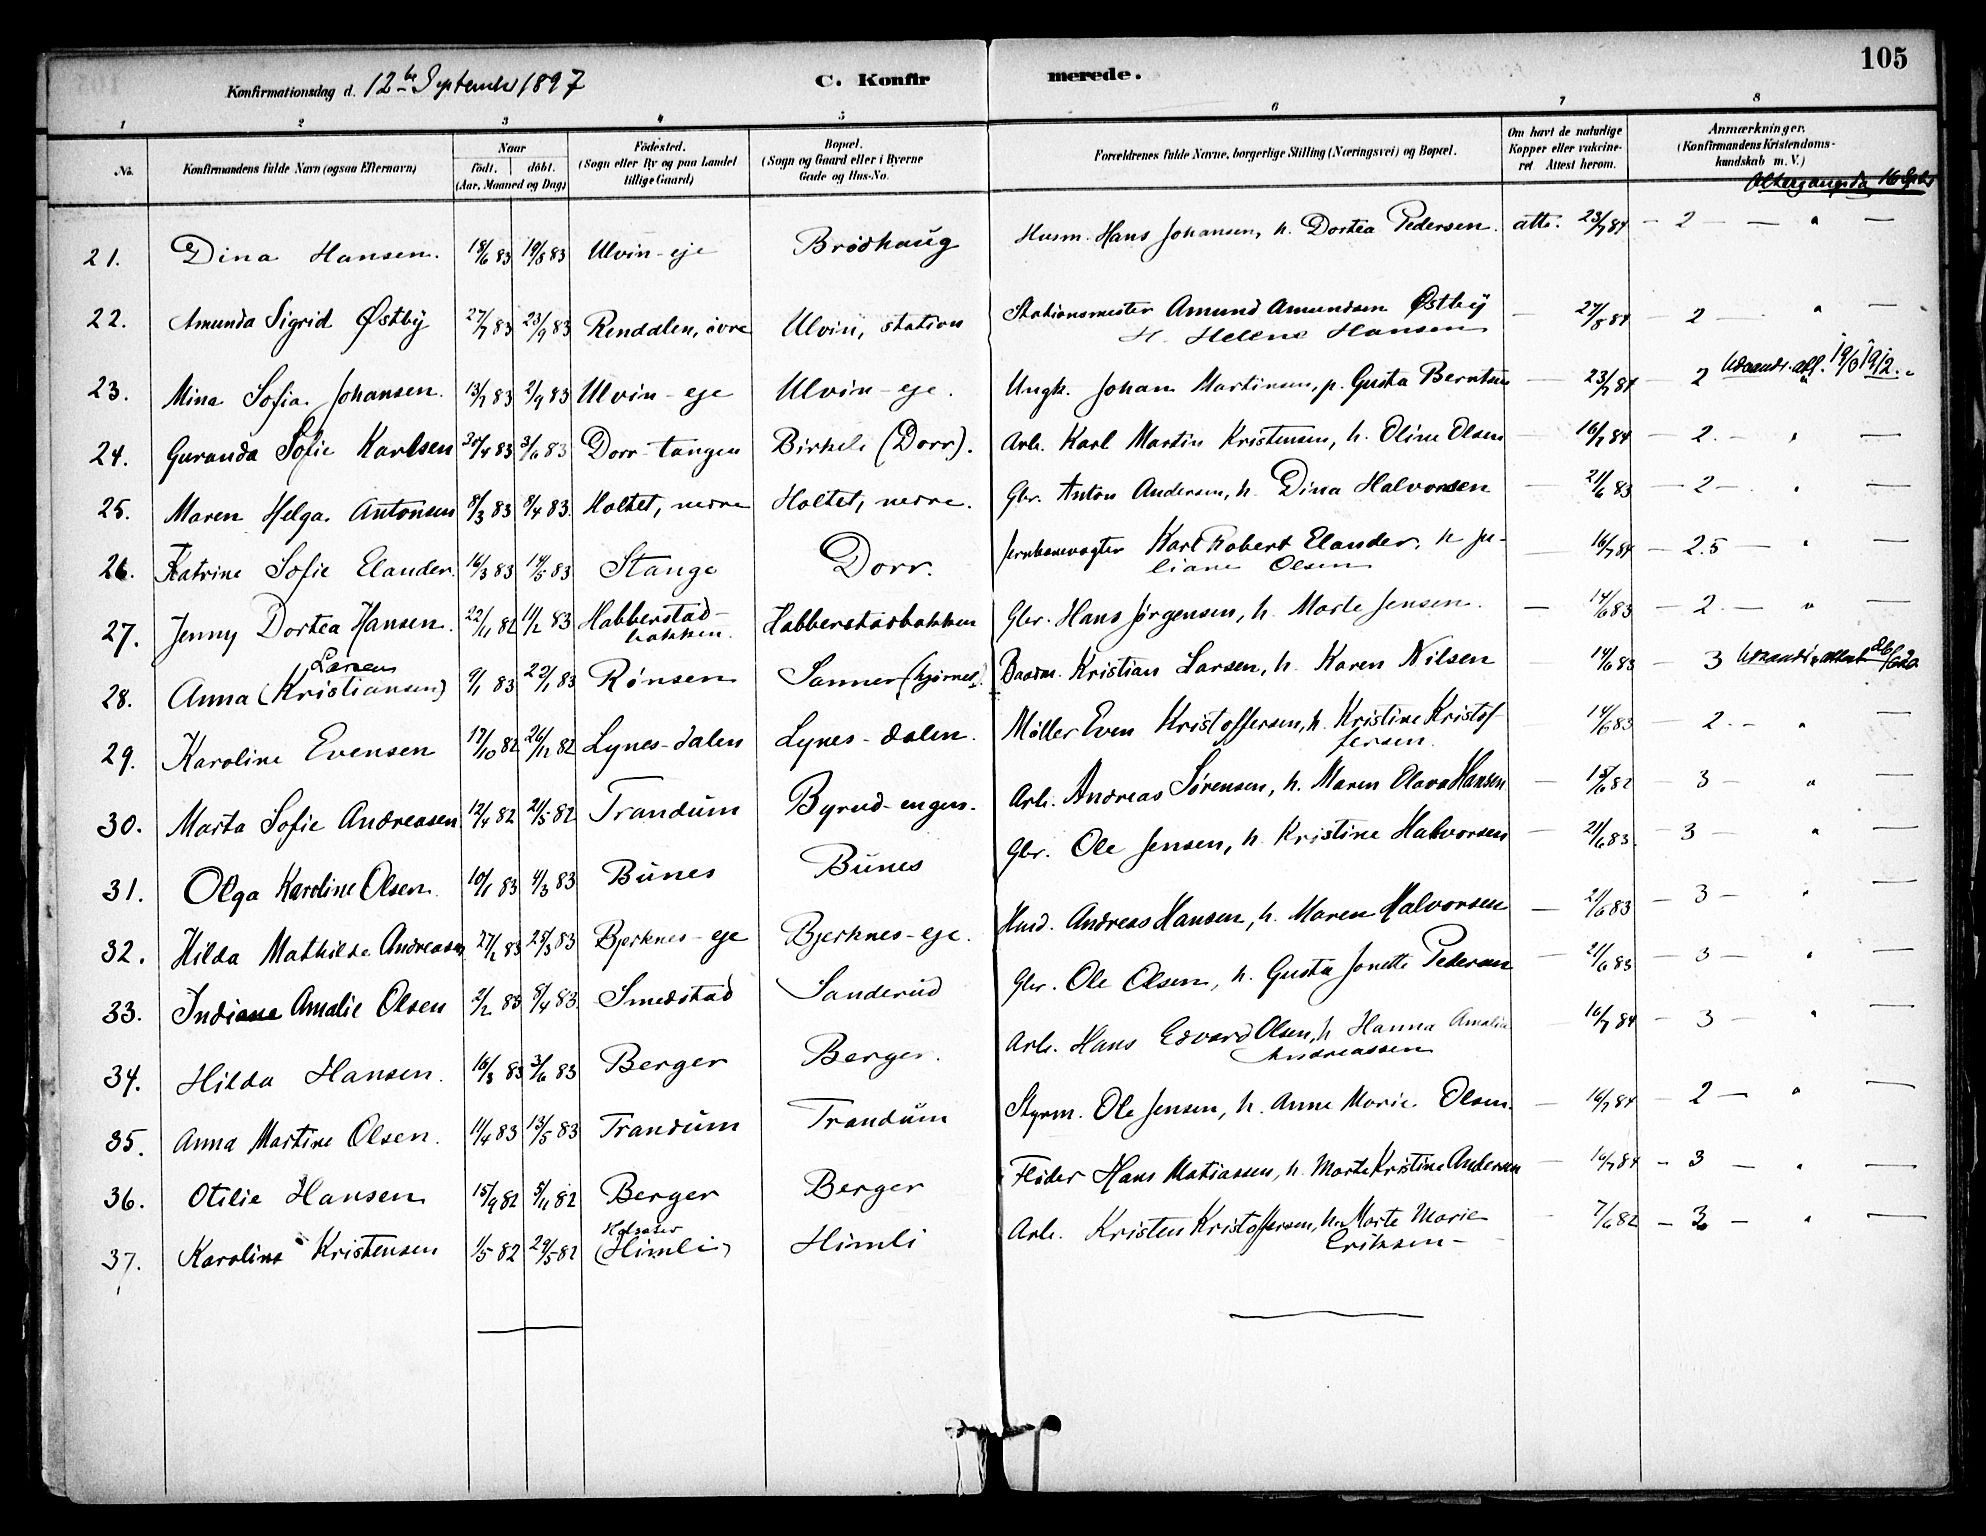 105
Konfirmationsdag d. 12te September 1897
C. Konfirmerede.
1 2 3 4 5 6 7 8
No. Konfirmandens fulde Navn (ogsaa Efternavn) Naar født. døbt. (Aar, Maaned og Dag) Fødested. (Sogn eller By og paa Landet tillige Gaard) Bopæl. (Sogn og Gaard eller i Byerne Gade og Hus-No. Forældrenes fulde Navne, borgerlige Stilling (Næringsvei) og Bopæl. Om havt de naturlige Kopper eller vakcineret Attest herom. Anmærkninger. (Konfirmandens Kristendomskundskab m. V.)
21. Dina Hansen. 18/6 83 19/8 83 Ulvin-eje Brødhaug Husm. Hans Johansen, h. Dortea Pedersen. att. 23/7 84 – 2 – — " —
22. Amunda Sigrid Østby 27/7 83 23/9 83 Rendalen, øvre Ulvin, station Stationsmester Amund Amundsen Østby
H. Helene Hansen — 27/8 84 – 2 — " —
23. Mina Sofia Johansen. 13/7 83 2/9 83 Ulvin-eje Ulvin-eje. Ungk. Johan Martinsen, p. Gusta Berntsen — 23/7 84 – 2 Udvandr. att. 19/3 1912.
24. Guranda Sofie Karlsen 20/4 83 3/6 83 Dorr-tangen Birkeli (Dorr). Arb. Karl Martin Kristensen, h. Oline Olsen — 16/7 84 – 2. – " —
25. Maren Helga Antonsen 8/3 83 8/4 83. Holtet, nedre Holtet, nedre. Gbr. Anton Andersen, h. Dina Halvorsen — 21/6 83 – 2 – " —
26. Katrine Sofie Elander. 16/3 83 14/5 83 Stange Dorr. Jernbanevogter Karl Robert Elander, h Ju-
liane Olsen 16/7 84 – 2.5 – " —
27. Jenny Dortea Hansen. 22/11 82 11/2 83 Habberstad-
bakken. Habberstadbakken Gbr. Hans Jørgensen, h. Marte Jensen. — 14/6 83 – 2. – " —
Larsen
28. Anna (Kristiansen) 9/1 83 22/1 83 Rønsen Sanner (hjørnet). Baadm. Kristian Larsen, h. Karen Nilsen 14/6 83 – 3
29. Karoline Evensen 17/10 82 26/12 82 Lynes-dalen Lynes-dalen. Møller Even Kristoffersen, h. Kristine Kristof-
fersen. 14/6 83 2. – " —
30. Marta Sofie Andreasen 12/4 82 21/5 82 Trandum Byrud-engen. Arb. Andreas Sørensen, h. Maren Olava Hansen — 15/6 82 – 3 – " —
31. Olga Karoline Olsen. 10/1 83 4/3 83 Bunes Bunes Gbr. Ole Jensen, h. Kristine Halvorsen — 21/6 83. – 3 – " —
32. Hilda Mathilde Andreasen 27/1 83 25/3 83 Bjerknes-eje Bjerknes-eje. Husm. Andreas Hansen, h. Maren Halvorsen — 21/6 83 – 3 – " —
33. Indiane Amalie Olsen 2/2 83 8/4 83. Smedstad Sanderud Gbr. Ole Olsen, h. Gusta Jonette Pedersen — 21/6 83 – 3 – " —
34. Hilda Hansen. 16/3 83 3/6 83 Berger Berger. Arb. Hans Edvard Olsen, h Hanna Amalia
Andreassen — 16/7 84 – 3 – " —
35. Anna Martine Olsen. 11/4 83 13/5 83 Trandum Trandum Styrm. Ole Jensen, h. Anne Marie Olsen. — 16/7 84 – 2 – " —
36. Otilie Hansen 15/9 82 5/11 82 Berger Berger Fløder Hans Matiassen, h. Marte Kristine Andersen — 16/7 84 – 3 – " —
37. Karoline Kristensen 1/5 82 29/5 82 (Himli) Himli Arb. Kristen Kristoffersen, h. Marte Marie
Eriksen – 7/6 82 – 3 – " —